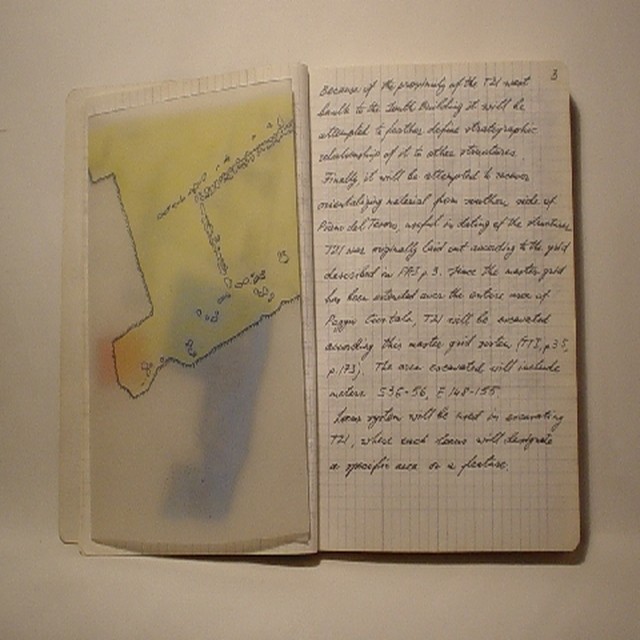 3
Because of the proximity of the T21 west
baulk to the South Building it will be
attempted to further define stratigraphic
relationship of it to other structures.
Finally, it will be attempted to recover
orientalizing material from southern side of
Piano del Tesoro, useful in dating of the structures.
T21 was originally laid out according to the grid
described in p. 3. Since the master grid
has been extended over the entire area of
Poggio Civitate, T21 will be excavated
according this master grid system p. 35,
p. 173). The area excavated will include
meters S36-56, E148-155
Locus system will be used in excavating
T21, where each locus will designate
a specific area or a feature.